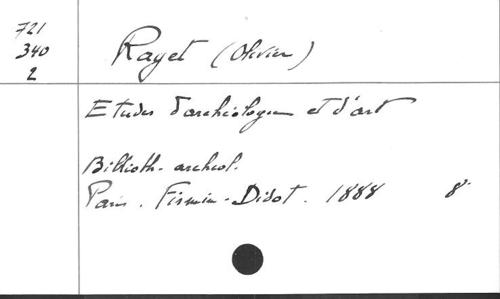 721
340
2
Rayet (Olivier)
Etudes d'archéologie et d'art
Biblioth. archéol.
Paris. Firmin-Didot. 1888 8°